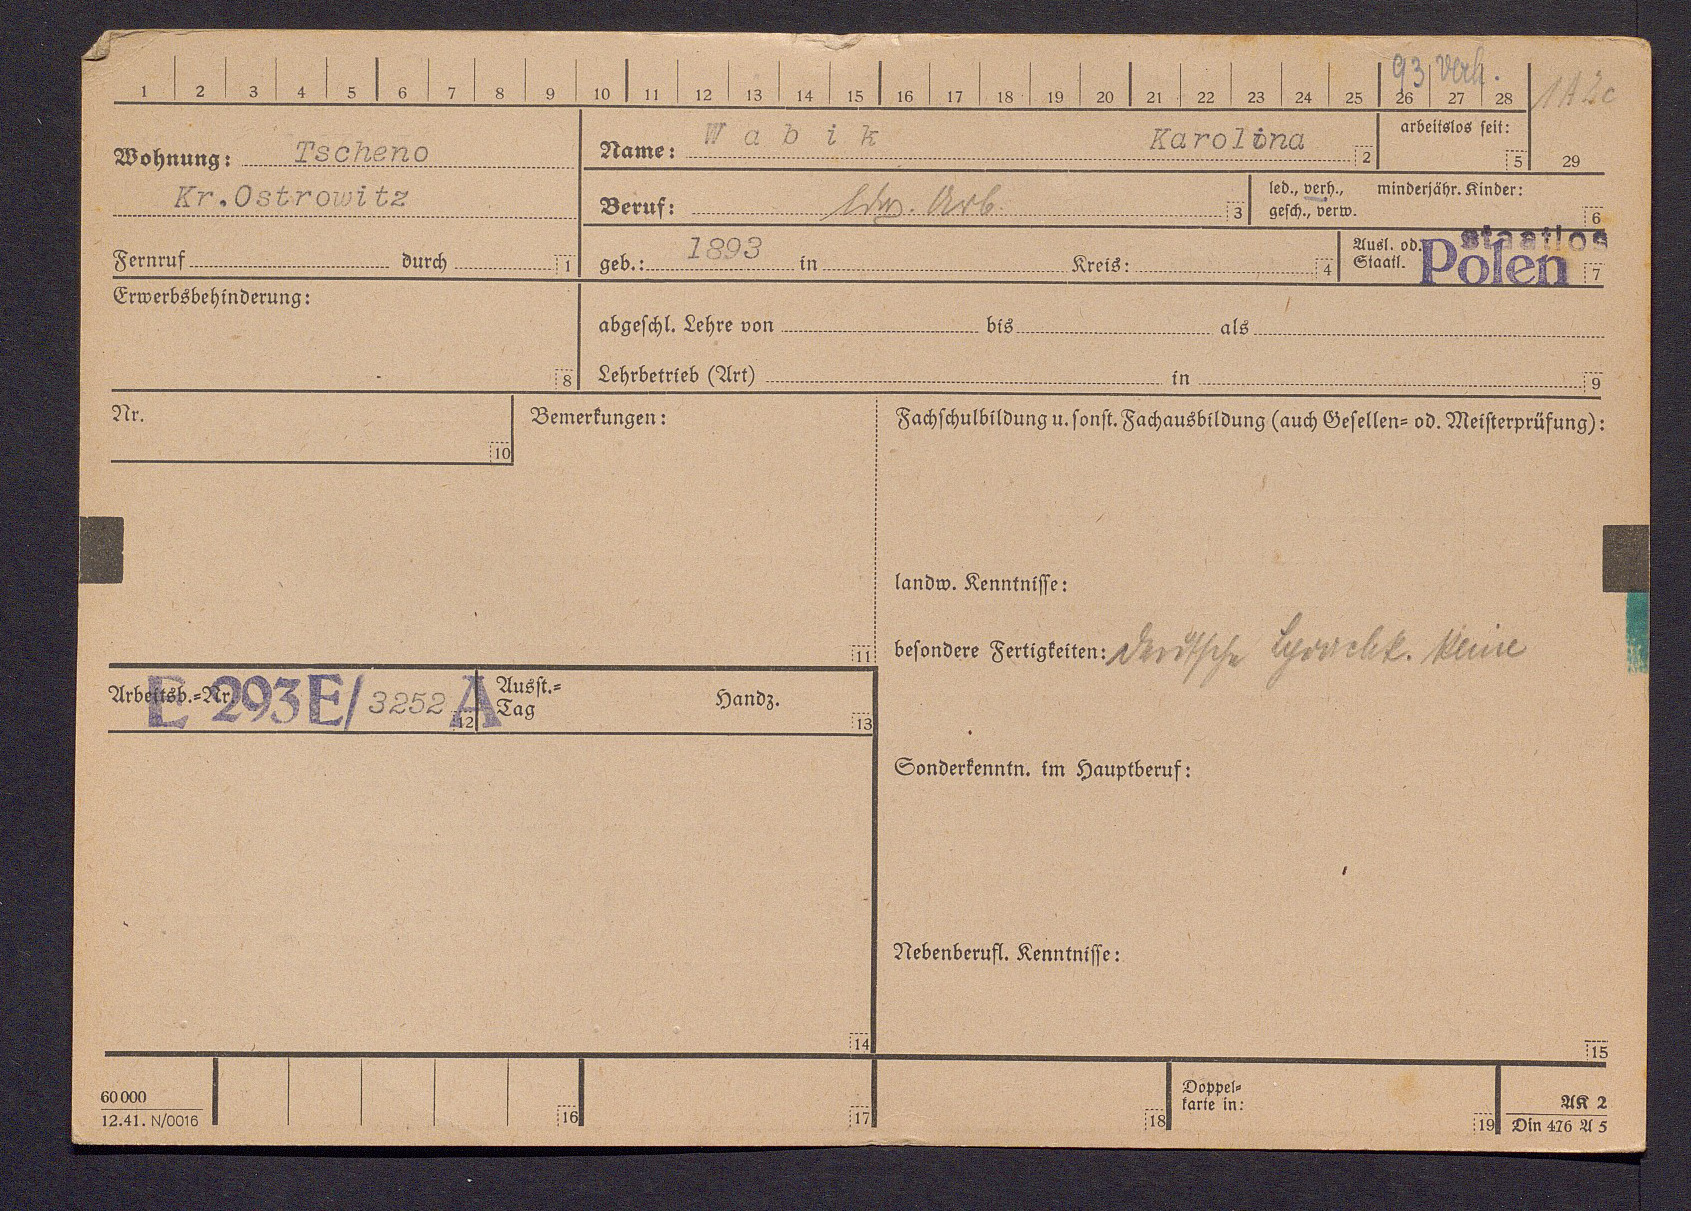 93 verh.
1 2 3 4 5 6 7 8 9 10 11 12 13 14 15 16 17 18 19 20 21 22 23 24 25 26 27 28
1A2c
Wohnung: Tscheno
Kr.Ostrowitz
Fernruf durch 1
Name: Wabik Karolina 2
arbeitslos seit: 5
29
Beruf: ldw. Arb. 3
led., verh., minderjähr. Kinder:
gesch., verw. 6
geb.: 1893 in Kreis: 4
Ausl. od. staatlos
Staatl. Polen 7
Erwerbsbehinderung:
8
abgeschl. Lehre von bis als
Lehrbetrieb (Art) in 9
Nr.
10
Bemerkungen:
11
Fachschulbildung u. sonst. Fachausbildung (auch Gesellen= od. Meisterprüfung):
landw. Kenntnisse:
besondere Fertigkeiten: deutsche Sprachk. keine
Arbeitsb.=Nr. E 293E/3252 A 12
Ausst.=
Tag Handz. 13
Sonderkenntn. im Hauptberuf:
Nebenberufl. Kenntnisse:
14
15
60000
12.41. N/0016
16
17
18
Doppel=
karte in:
19
AK 2
Din 476 A 5